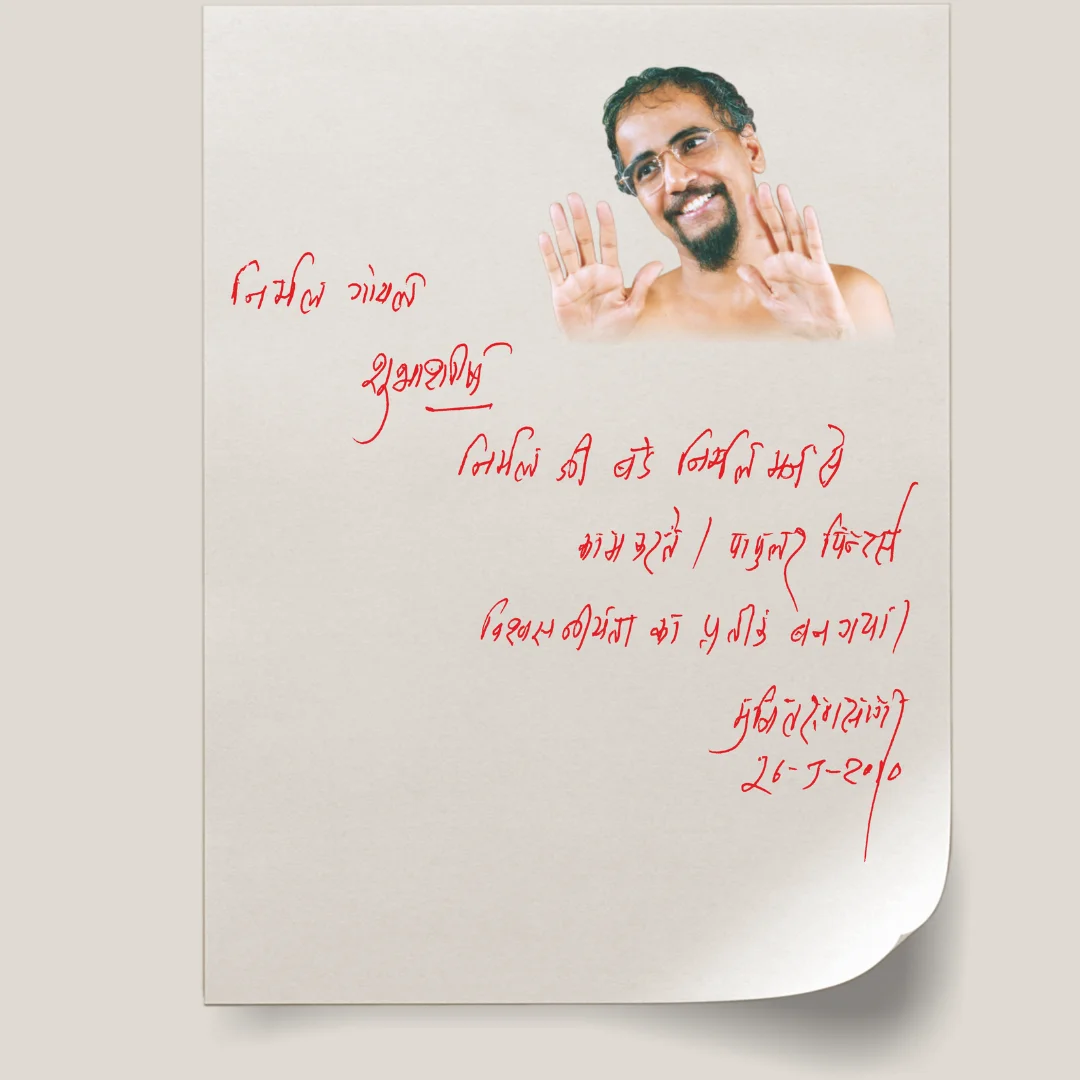 निर्मल गोयल
शुभाशीर्ष
निर्मल जी बडे निर्मल मन से
काम करते। पापुलर प्रिन्टर्स
विश्वसनीयता का प्रतीक बन गया।
26-5-2010